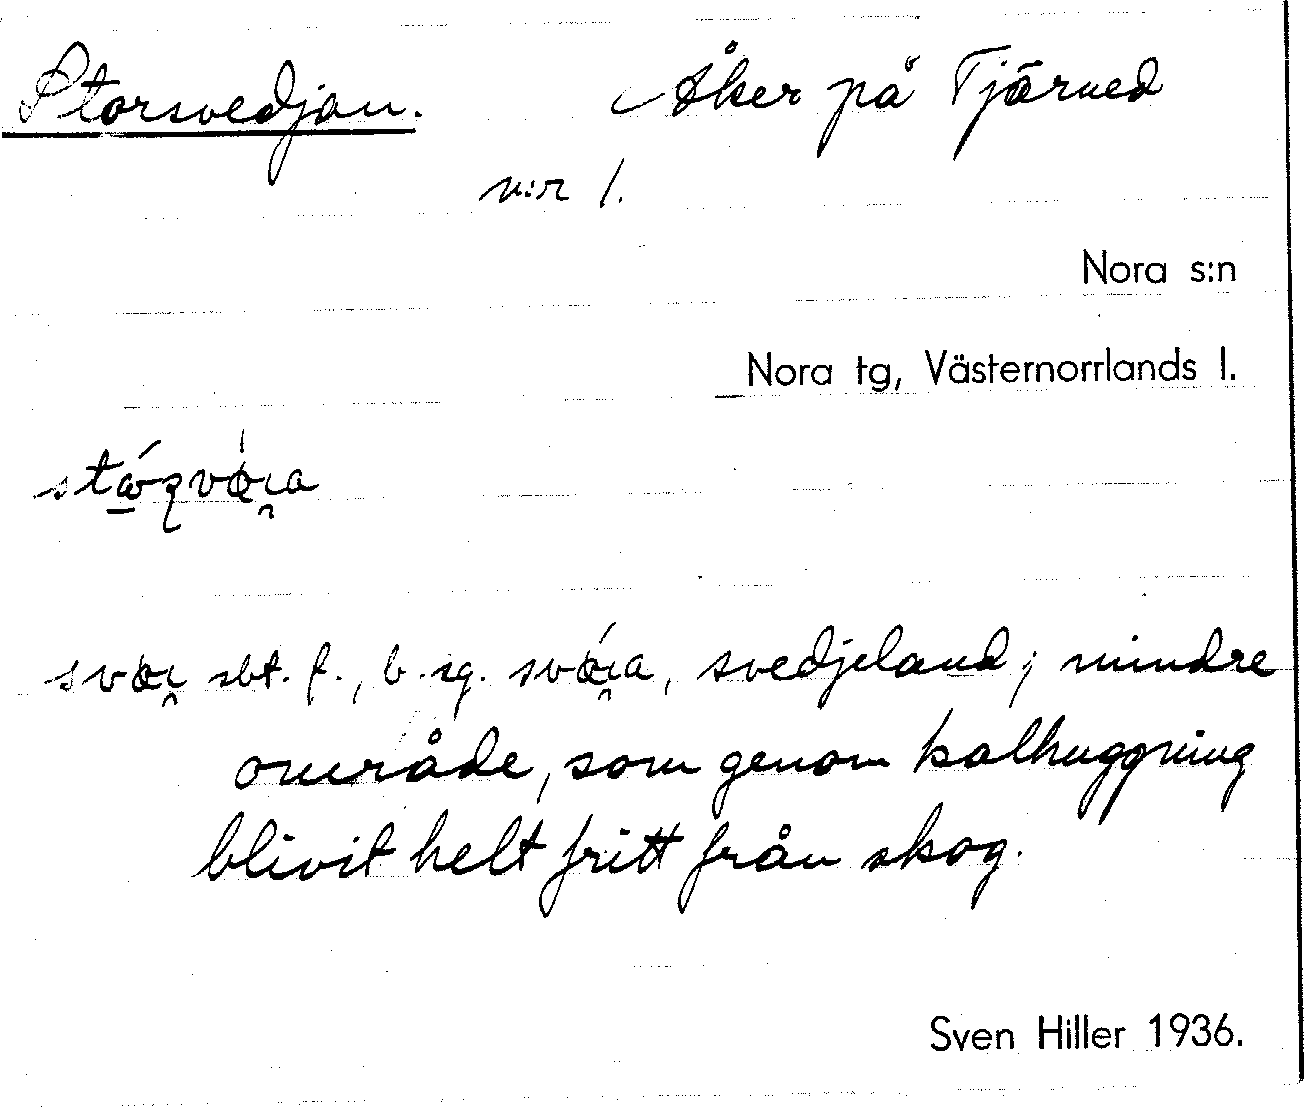 Storsvedjan. Åker på Tjärned
n:r 1.
Nora s:n
Nora tg, Västernorrlands l.
sbt. f., b. sg. svedjeland; mindre
område, som genom kalhuggning
blivit helt fritt från skog.
Sven Hiller 1936.